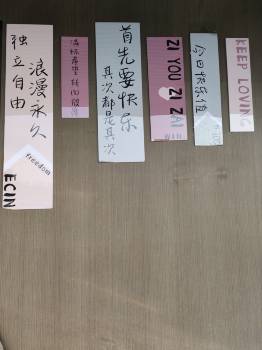 独立自由
浪漫永久
freedom
ECIN
首先要快乐
其次都是其次
ZI YOU ZI ZAI
今日快乐值
KEEP LOVING